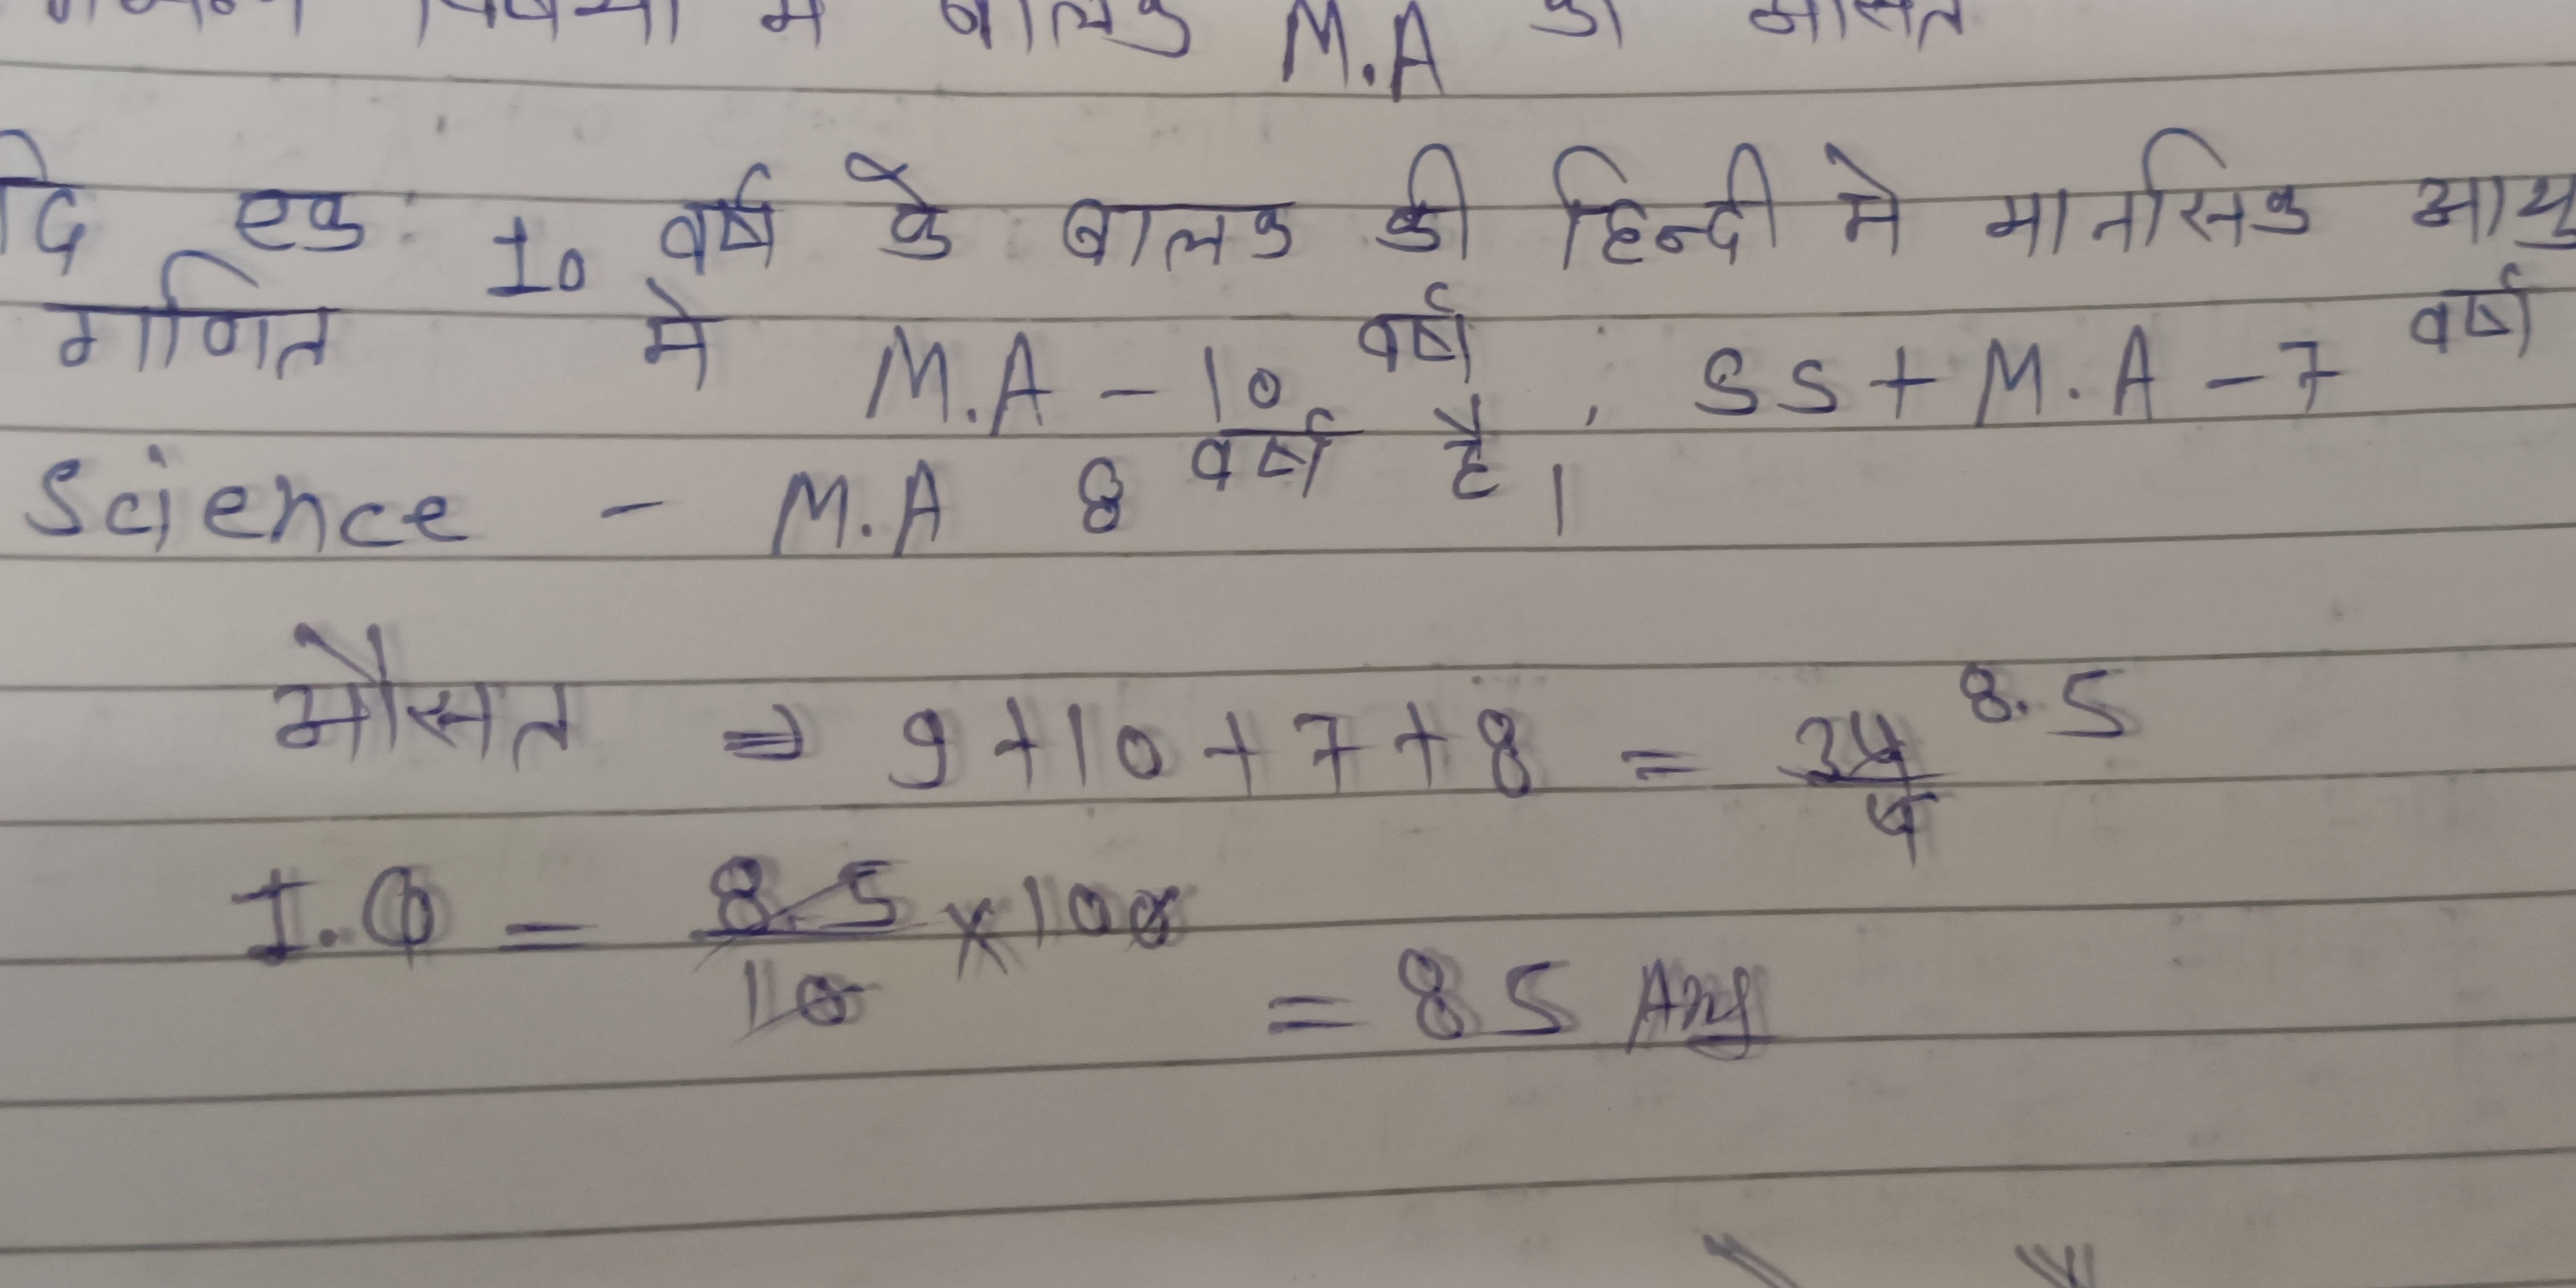 विषयो में बालक M.A का औसत
एक 10 वर्ष के बालक की हिन्दी मे मानसिक आयु
गणित मे M.A - 10 वर्ष, SS + M.A - 7 वर्ष
Science - M.A 8 वर्ष है।
औसत ⇒ 9 + 10 + 7 + 8 = 34/4 8.5
I.Q = 8.5/10 × 100
= 85 Ans